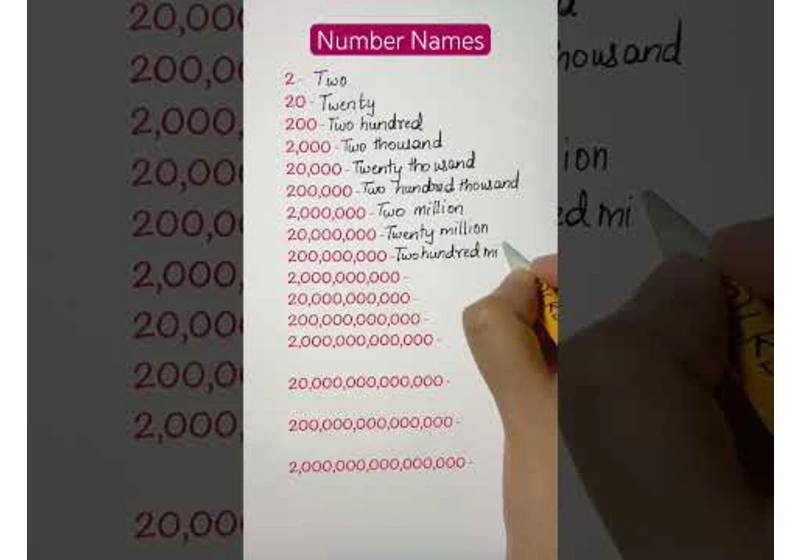 Number Names
2 - Two
20 - Twenty
200 - Two hundred
2,000 - Two thousand
20,000 - Twenty thousand
200,000 - Two hundred thousand
2,000,000 - Two million
20,000,000 - Twenty million
200,000,000 - Two hundred mi
2,000,000,000 -
20,000,000,000 -
200,000,000,000 -
2,000,000,000,000 -
20,000,000,000,000 -
200,000,000,000,000 -
2,000,000,000,000,000 -